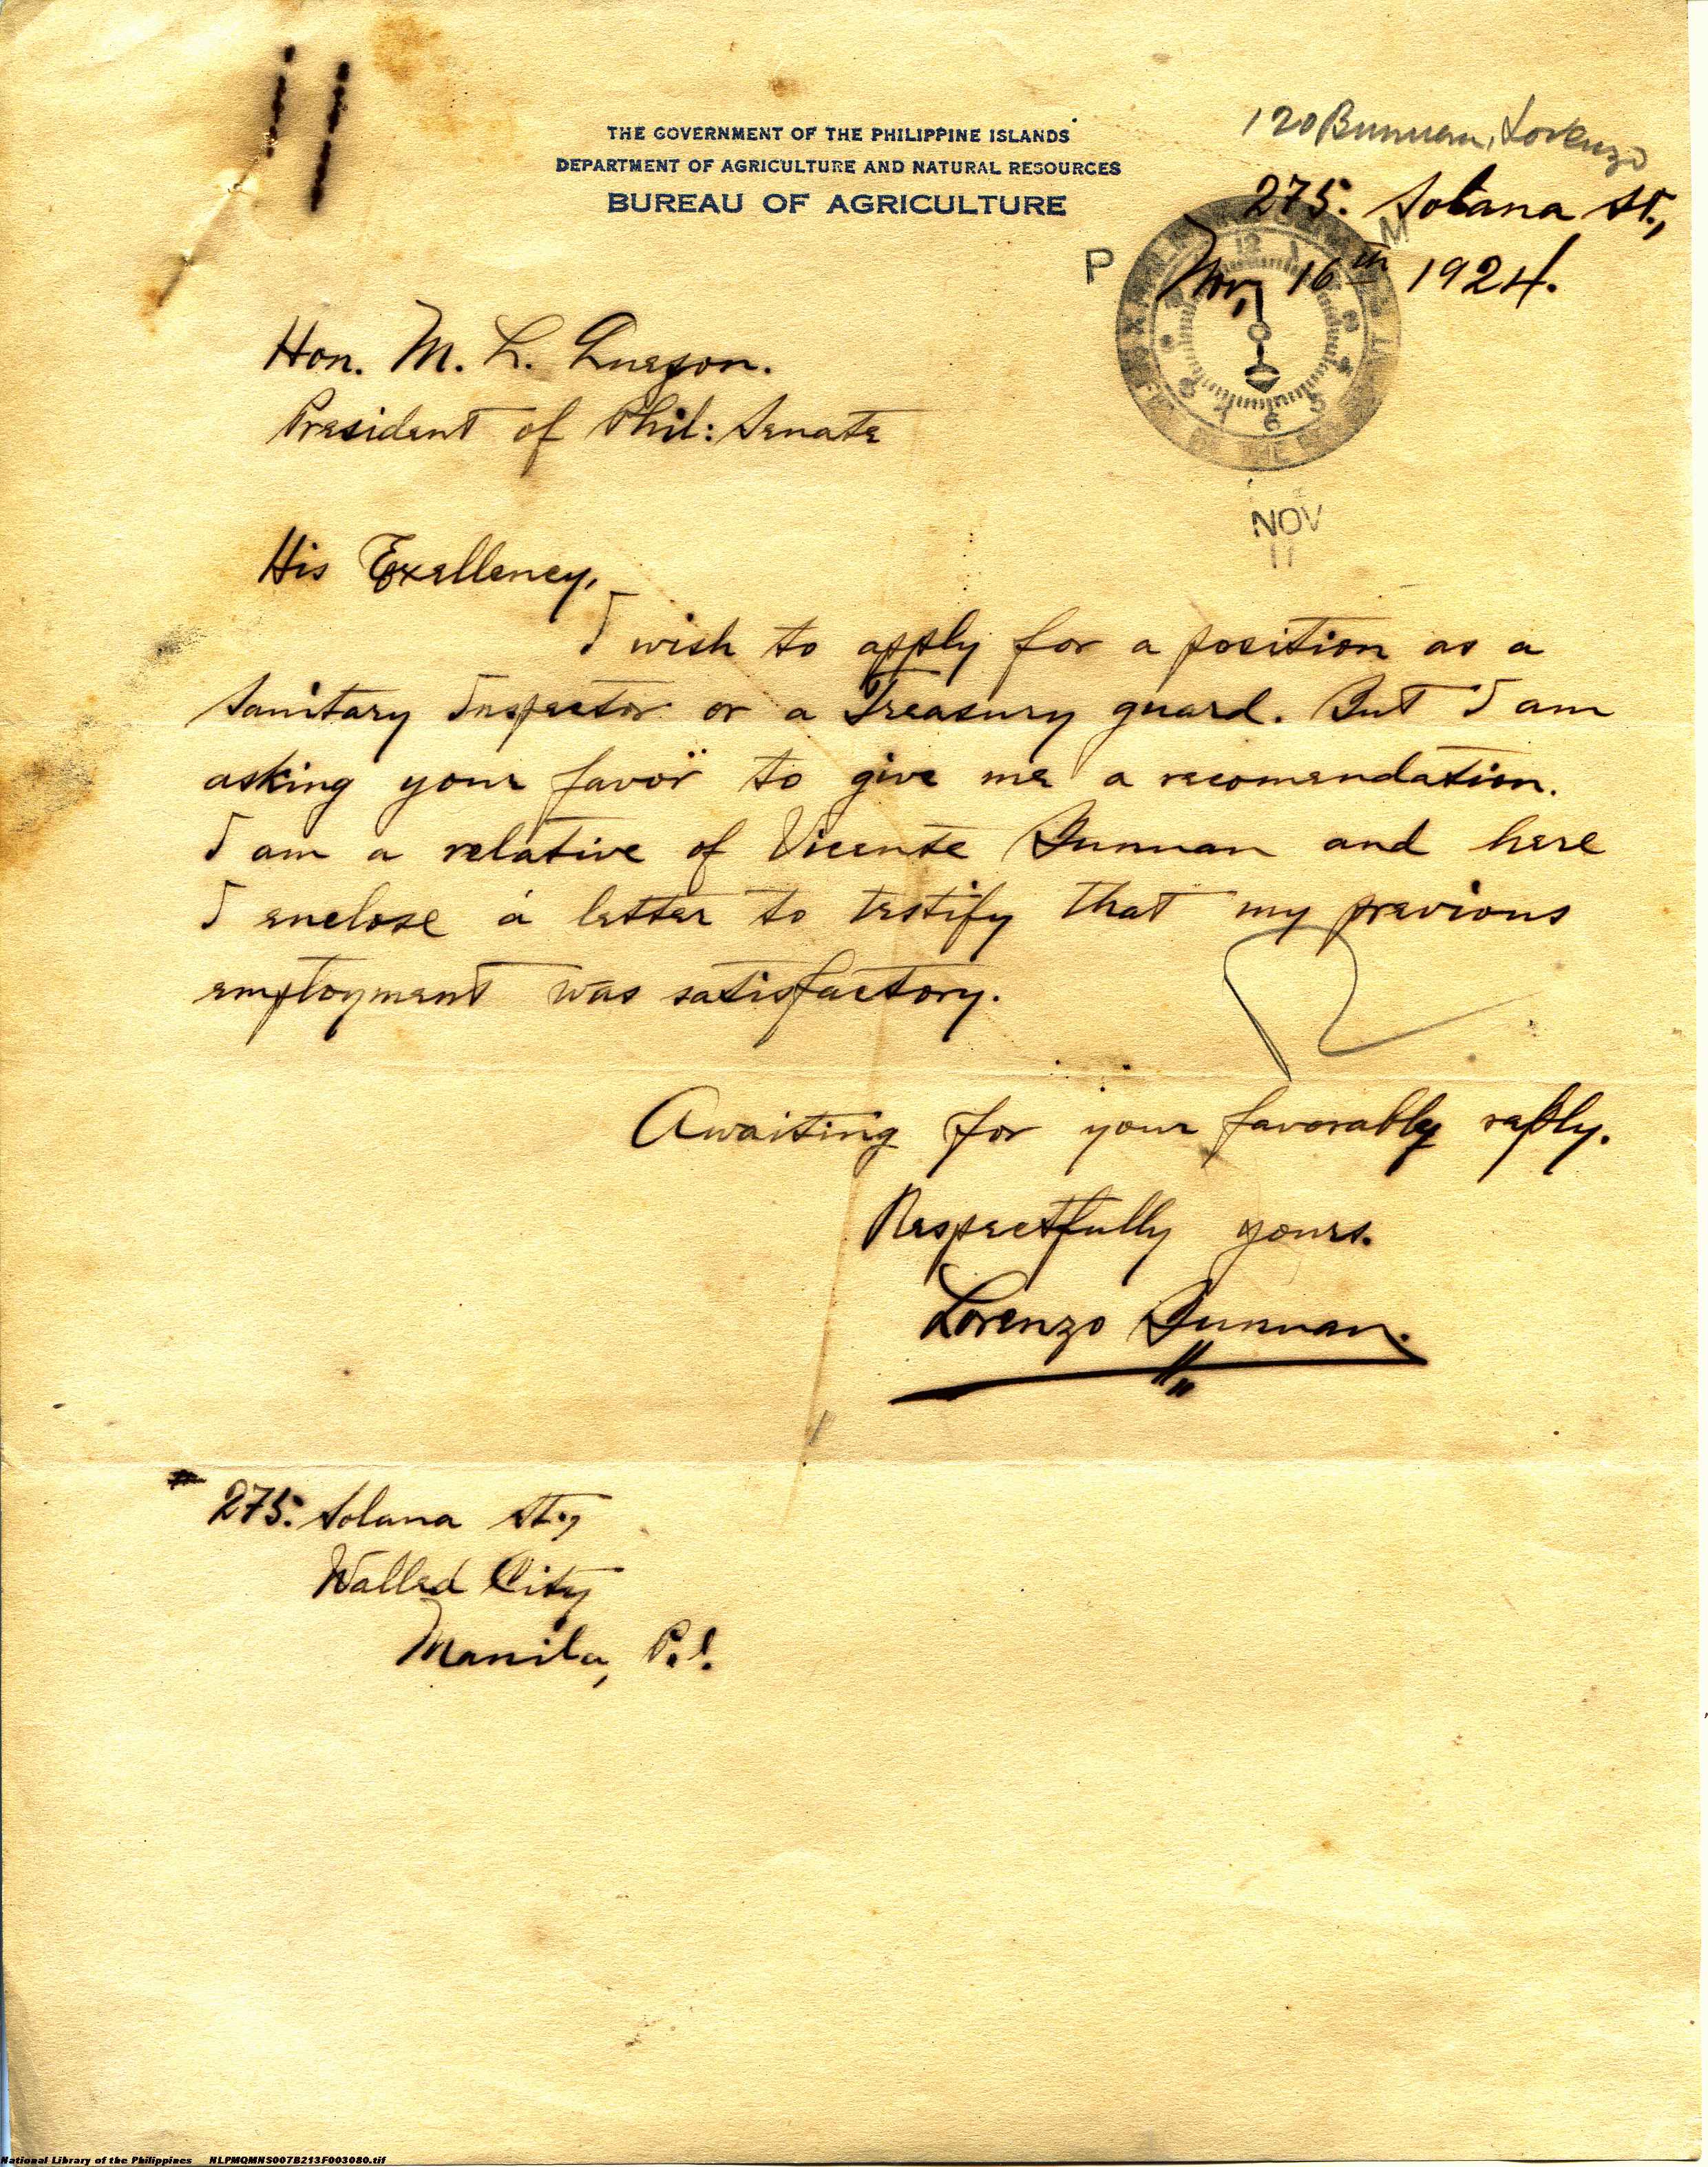 THE GOVERNMENT OF THE PHILIPPINE ISLANDS
DEPARTMENT OF AGRICULTURE AND NATURAL RESOURCES
BUREAU OF AGRICULTURE
120 Bunuan, Lorenzo
275. Solana St.,
Nov, 16th 1924.
P M
12 1
NOV
Hon. M. L. Quezon.
President of Phil: Senate
His Exellency,
I wish to apply for a position as a
Sanitary Inspector or a Treasury guard. But I am
asking your favor to give me a recomendation.
I am a relative of Vicente Bunuan and here
I enclose a letter to testify that my previous
employment was satisfactory.
Awaiting for your favorably reply.
Respectfully yours.
Lorenzo Bunuan.
275. Solana St.,
Walled City
Manila, P.I.
National Library of the Philippines NLPMQMNS007B213F003080.tif